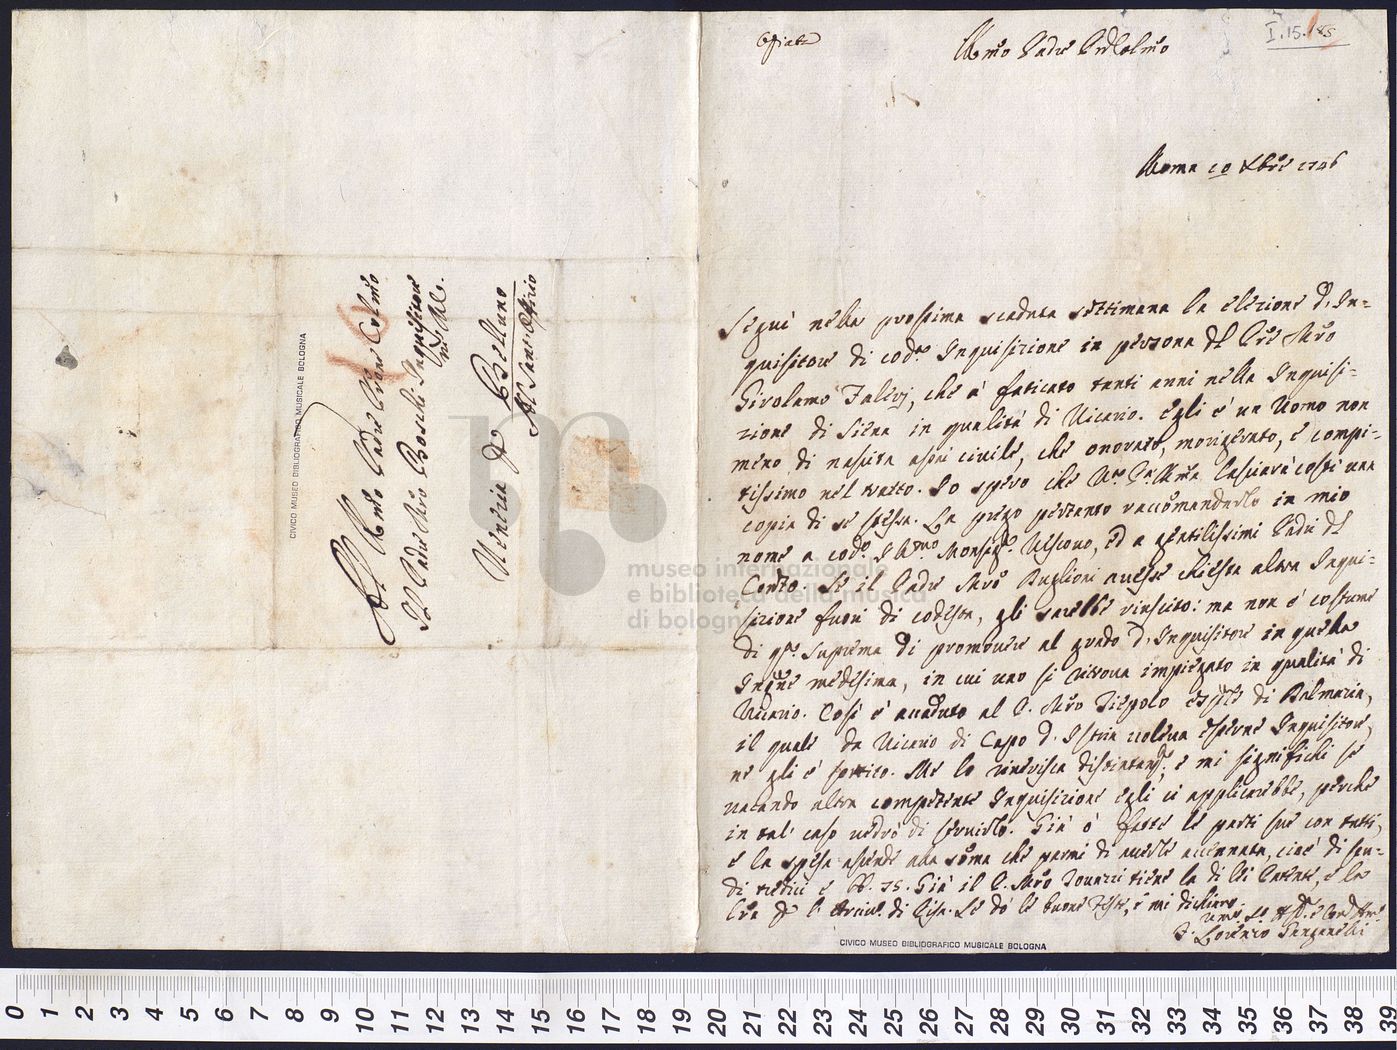 I.15.185
Copiata
Rmo Padre Prõe Colmo
Roma 10 Xbre 1746
Seguì nella prossima scaduta settimana la elezione d'In-
quisitore di cod.a Inquisizione in persona del Pre Mro
Girolamo Falerj, che à faticato tanti anni nella Inquisi-
zione di Siena in qualità di Vicario. Egli è un Uomo non
meno di nascita assai civile, che onorato, morigerato, è compi-
tissimo nel tratto. Io spero che V.a P.tà Rma lasciarà costì una
copia di se stessa. La prego pertanto raccomandarlo in mio
nome a cod.o Monsig.r Vescovo, ed a gentilissimi Padri del
Conto. Se il Padre Mro Buglioni avesse chiesta altra Inqui-
sizione fuori di codesta, gli sarebbe riuscito: ma non è costume
di q.ta Suprema di promovere al grado d'Inquisitore in quella
Inqne medesima, in cui uno si ritrova impiegato in qualità di
Vicario. Così è accaduto al P. Mro Tiepolo di Dalmazia,
il quale da Vicario di Capo d'Istria voleva esserne Inquisitore,
ne gli è sortito. Me lo riverisca, è mi significhi se
vacando altra competente Inquisizione egli ci applicarebbe, perche
in tal caso vedrò di servirlo. Già ò fatte le parti sue con tutti,
è la spesa ascende alla soma che parmi di averle accennata, cioè di scu-
di tredici è bb. 75. Già il P. Mro tiene la di lei Patente, è la
di Pisa. Le dò le buone Feste, è mi dichiaro
F. Lorenzo Ganganelli
Al Rmo Padre Prõn Colmo
Il Padre Mro Boschi Inquisitore
Venezia per Belluno
Al Sant'Offizio
CIVICO MUSEO BIBLIOGRAFICO MUSICALE BOLOGNA
CIVICO MUSEO BIBLIOGRAFICO MUSICALE BOLOGNA
museo internazionale
e biblioteca della musica
di bologna
0 1 2 3 4 5 6 7 8 9 10 11 12 13 14 15 16 17 18 19 20 21 22 23 24 25 26 27 28 29 30 31 32 33 34 35 36 37 38 39